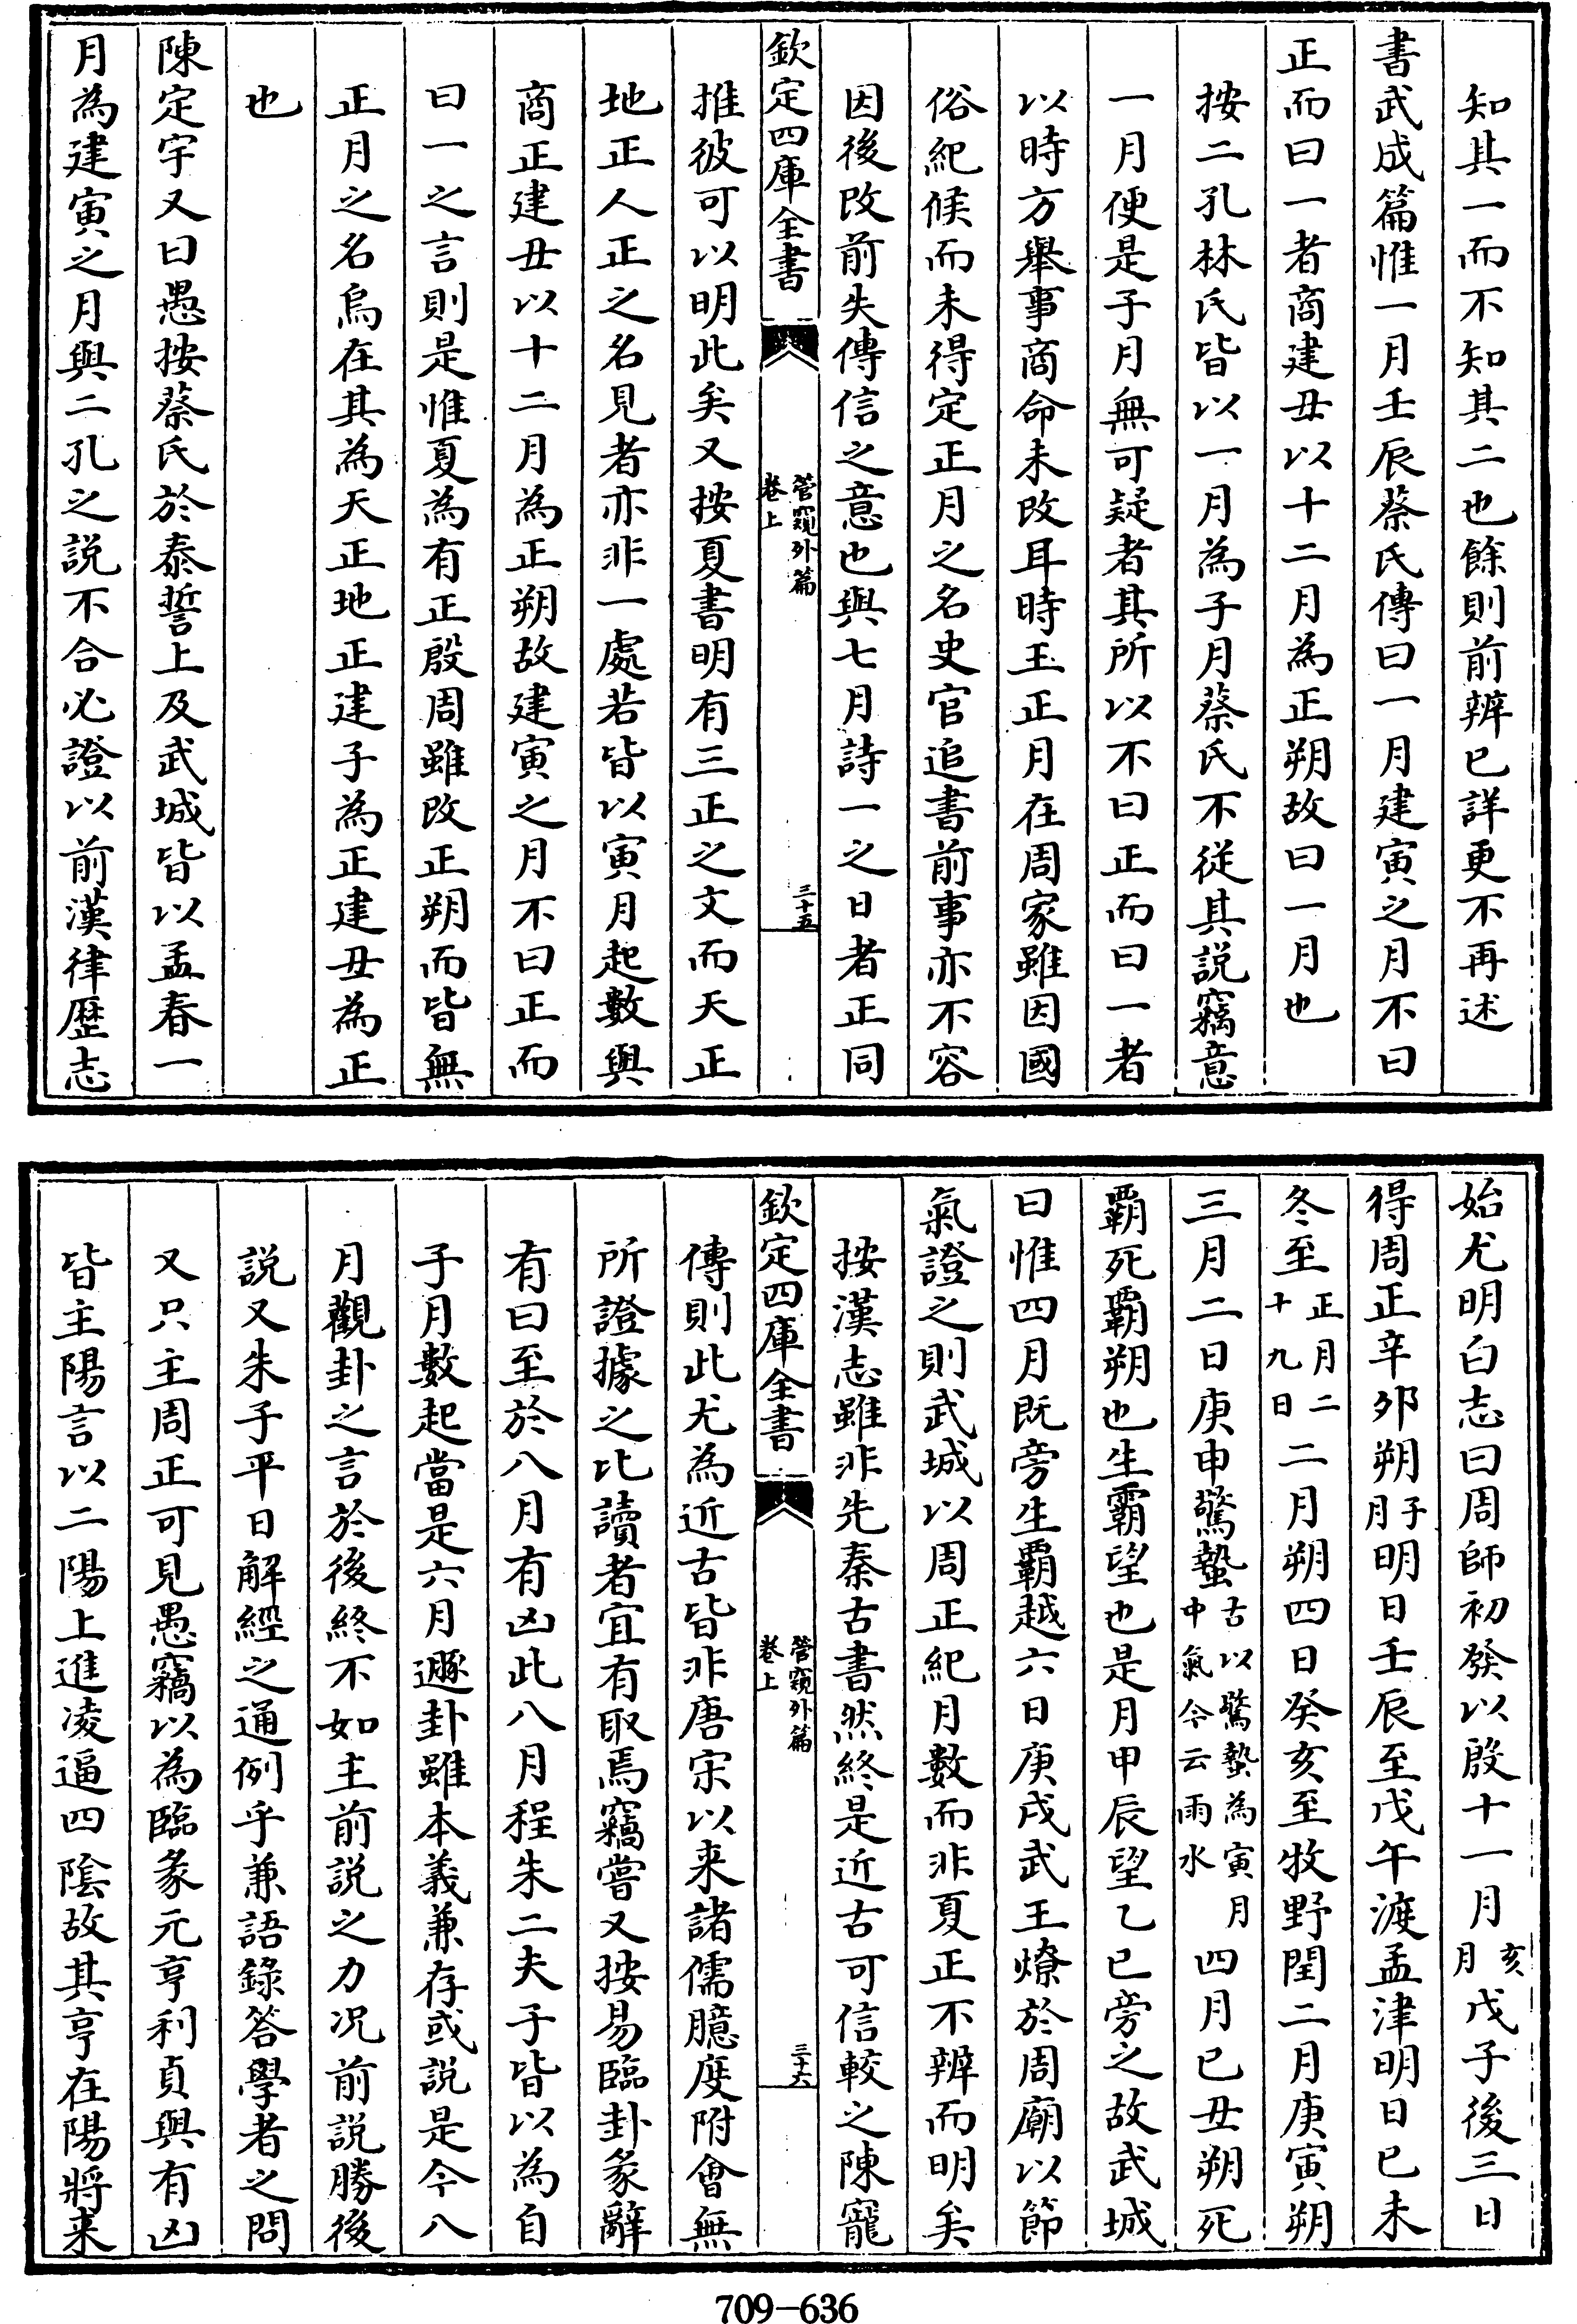 知其一而不知其二也餘則前辨已詳更不再述
書武成篇惟一月壬辰蔡氏傳曰一月建寅之月不曰
正而曰一者商建丑以十二月為正朔故曰一月也
按二孔林氏皆以一月為子月蔡氏不從其說竊意
一月便是子月無可疑者其所以不曰正而曰一者
以時方舉事商命未改耳時王正月在周家雖因國
俗紀候而未得定正月之名史官追書前事亦不容
因後改前失傳信之意也與七月詩一之日者正同
欽定四庫全書 管窺外篇 卷上 三十五
推彼可以明此矣又按夏書明有三正之文而天正
地正人正之名見者亦非一處若皆以寅月起數與
商正建丑以十二月為正朔故建寅之月不曰正而
曰一之言則是惟夏為有正殷周雖改正朔而皆無
正月之名烏在其為天正地正建子為正建丑為正
也
陳定宇又曰愚按蔡氏於泰誓上及武城皆以孟春一
月為建寅之月與二孔之說不合必證以前漢律歷志
始尤明白志曰周師初發以殷十一月亥月戊子後三日
得周正辛夘朔子月明日壬辰至戊午渡孟津明日已未
冬至正月二十九日二月朔四日癸亥至牧野閏二月庚寅朔
三月二日庚申驚蟄古以驚蟄為寅月中氣今云雨水四月已丑朔死
霸死霸朔也生霸望也是月甲辰望乙已旁之故武城
曰惟四月既旁生霸越六日庚戌武王燎於周廟以節
氣證之則武城以周正紀月數而非夏正不辨而明矣
按漢志雖非先秦古書然終是近古可信較之陳寵
欽定四庫全書 管窺外篇 卷上 三十六
傳則此尤為近古皆非唐宋以来諸儒臆度附會無
所證據之比讀者宜有取焉竊嘗又按易臨卦彖辭
有曰至於八月有凶此八月程朱二夫子皆以為自
子月數起當是六月遯卦雖本義兼存或說是今八
月觀卦之言於後終不如主前說之力况前說勝後
說又朱子平日解經之通例乎兼語錄答學者之問
又只主周正可見愚竊以為臨彖元亨利貞與有凶
皆主陽言以二陽上進凌逼四陰故其亨在陽將来
709-636